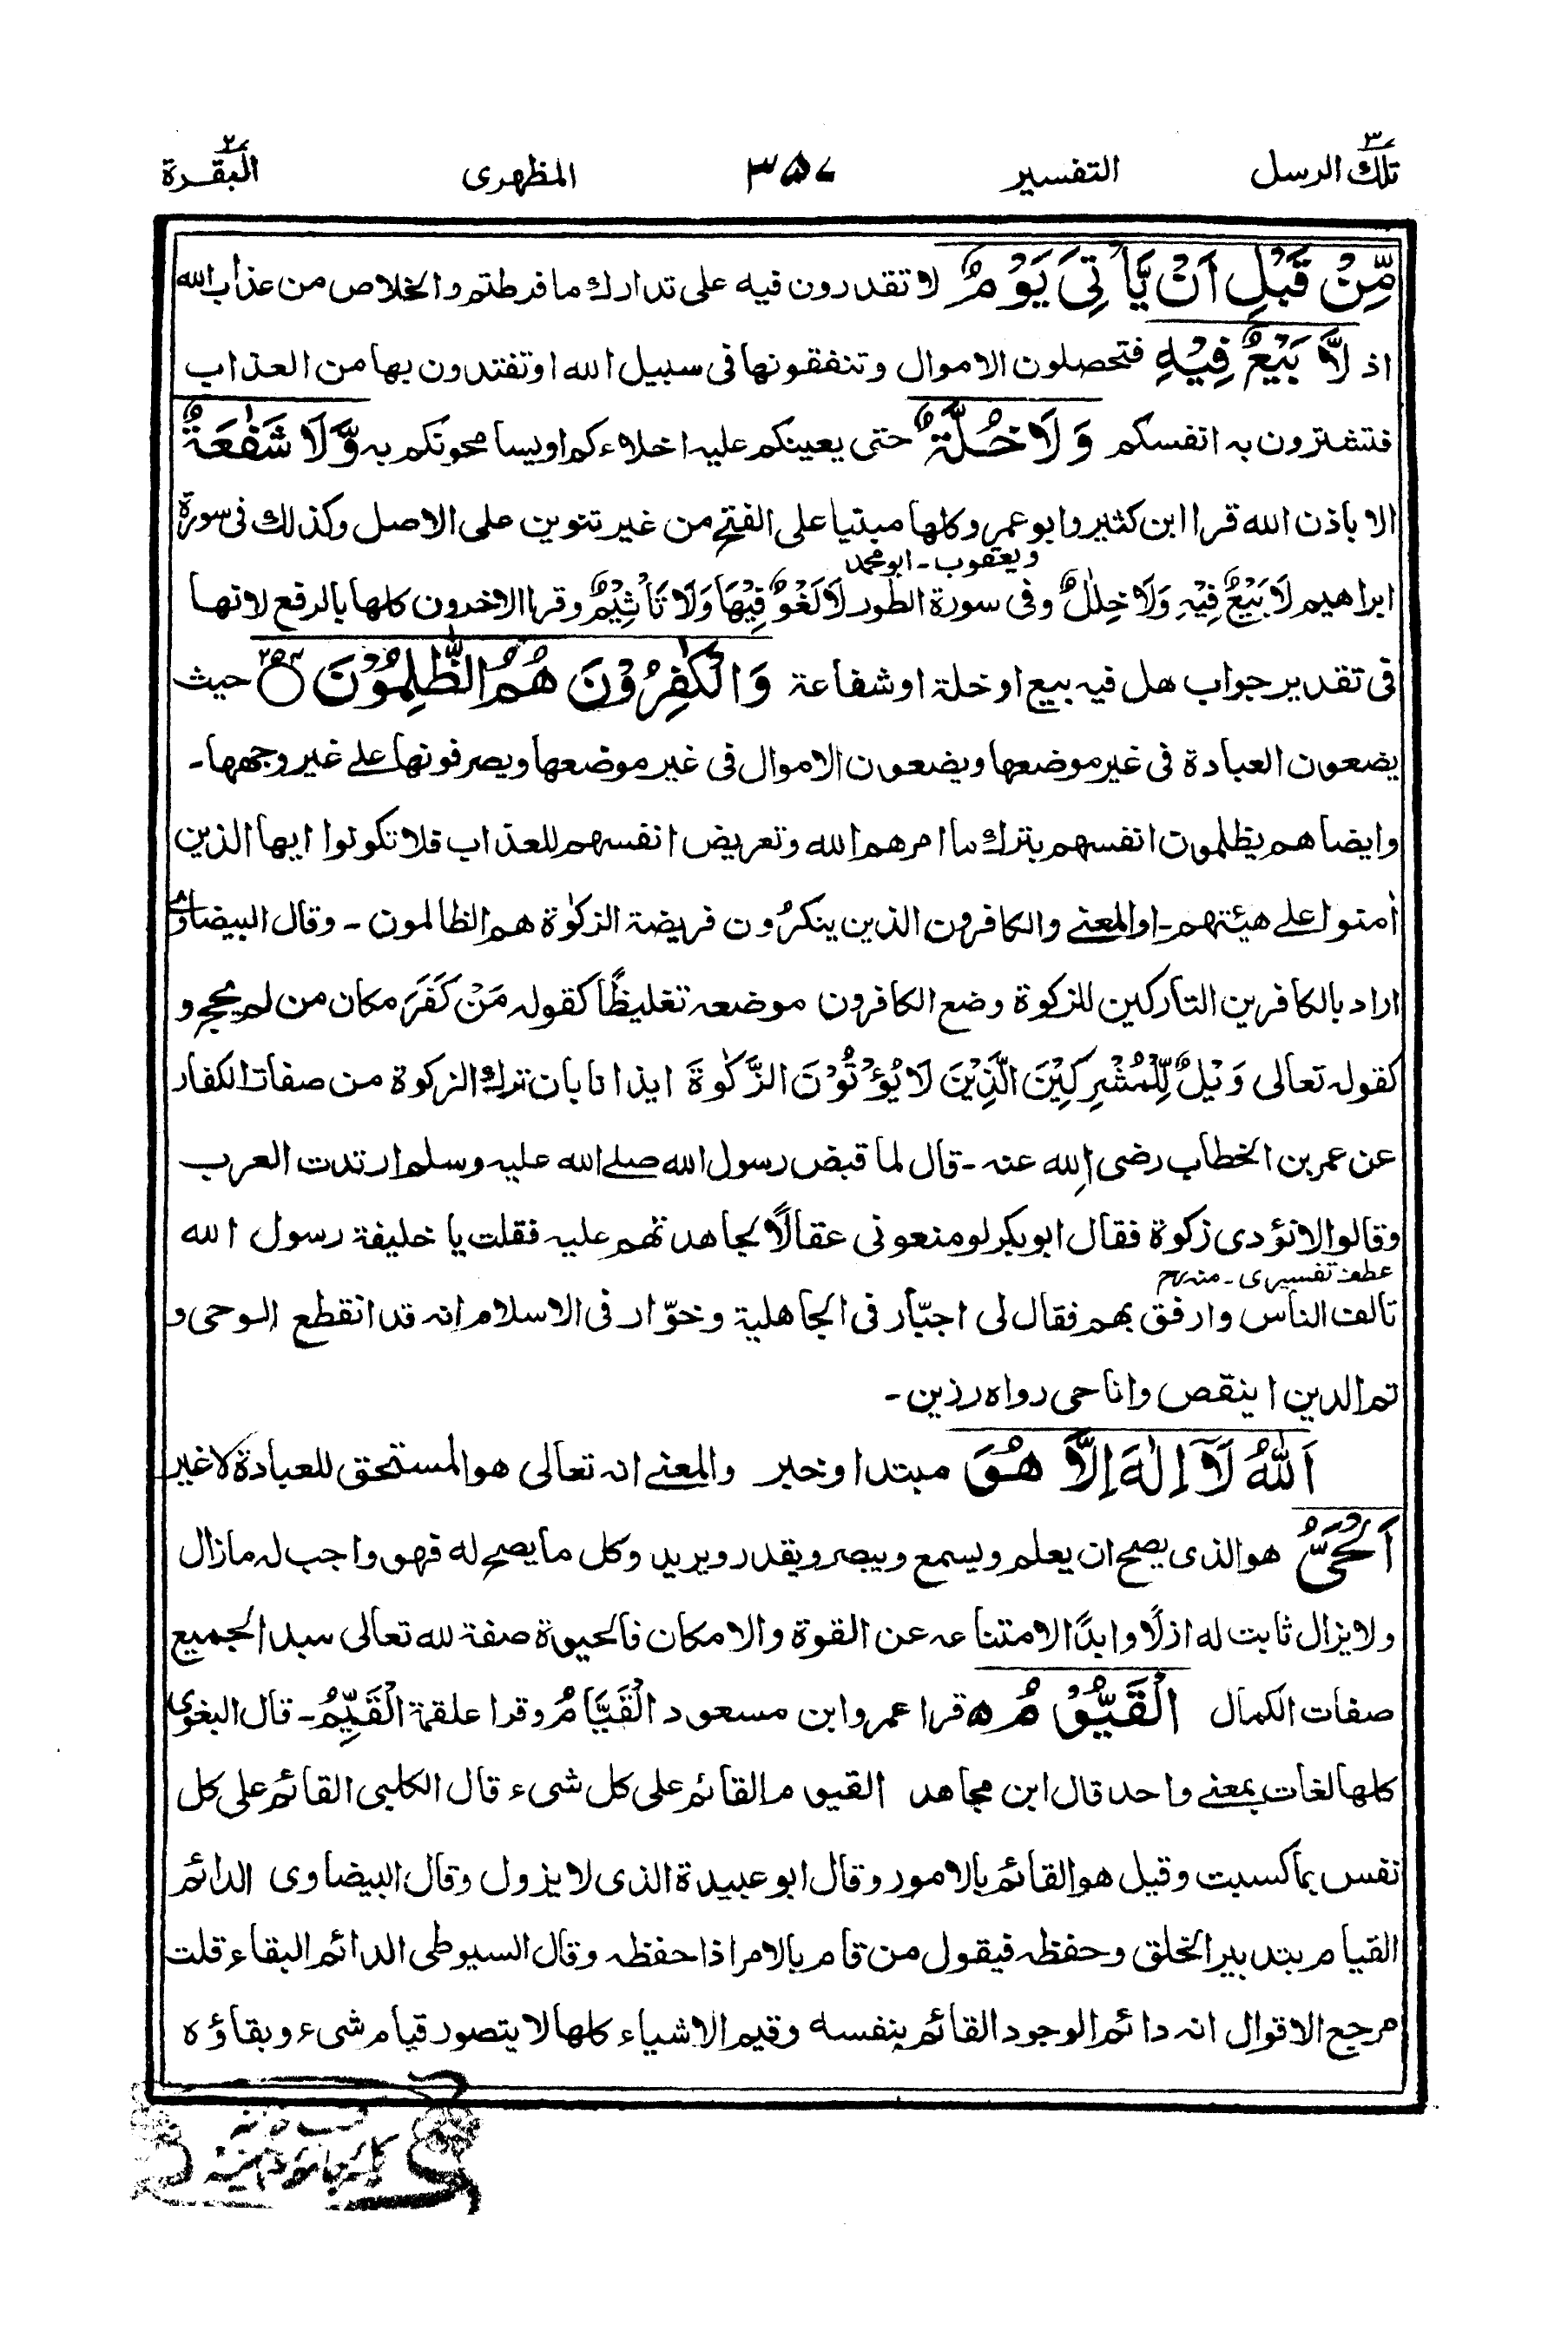 تلك الرسل ٣ التفسير ٣٥٧ المظهرى البقرة ٢
مِّنْ قَبْلِ اَنْ يَّاْتِىَ يَوْمٌ لا تقدرون فيه على تدارك ما فرطتم والخلاص من عذاب الله
اذ لَّا بَيْعٌ فِيْهِ فتحصلون الاموال وتنفقونها فى سبيل الله او تفتدون بها من العذاب
فتشترون به انفسكم وَلَا خُلَّةٌ حتى يعينكم عليه اخلاءكم او يسامحونكم به وَّلَا شَفٰعَةٌ
الا باذن الله قرا ابن كثير وابو عمرو كلها مبتيا على الفتح من غير تنوين على الاصل وكذلك فى سورة
ويعقوب - ابو محمد
ابراهيم لَا بَيْعٌ فِيْهِ وَلَا خِلٰلٌ وفى سورة الطور لَا لَغْوٌ فِيْهَا وَلَا تَاْثِيْمٌ وقرا الاخرون كلها بالرفع لانها
فى تقدير جواب هل فيه بيع او خلة او شفاعة وَالْكٰفِرُوْنَ هُمُ الظّٰلِمُوْنَ ۝٢٥٤ حيث
يضعون العبادة فى غير موضعها ويضعون الاموال فى غير موضعها ويصرفونها على غير وجهها -
وايضا هم يظلمون انفسهم بترك ما امرهم الله وتعريض انفسهم للعذاب فلا تكونوا ايها الذين
اٰمنوا على هيئتهم - او المعنى والكافرون الذين ينكرون فريضة الزكوٰة هم الظالمون - وقال البيضاوى
اراد بالكافرين التاركين للزكوة وضع الكافرون موضعه تغليظًا كقوله مَنْ كَفَرَ مكان من لم يحج و
كقوله تعالى وَيْلٌ لِّلْمُشْرِكِيْنَ الَّذِيْنَ لَا يُؤْتُوْنَ الزَّكٰوةَ ايذانا بان ترك الزكوة من صفات الكفار
عن عمر بن الخطاب رضى الله عنه - قال لما قبض رسول الله صلى الله عليه وسلم ارتدت العرب
وقالوا لا نؤدى زكوة فقال ابو بكر لو منعونى عقالًا لجاهدتهم عليه فقلت يا خليفة رسول الله
عطف تفسيرى - منه رح
تالف الناس وارفق بهم فقال لى اجبّار فى الجاهلية وخوّار فى الاسلام انه قد انقطع الوحى و
تم الدين اينقص وانا حى رواه رزين -
اَللّٰهُ لَآ اِلٰهَ اِلَّا هُوَ مبتدا وخبر والمعنى انه تعالى هو المستحق للعبادة لا غير
اَلْحَىُّ هو الذى يصح ان يعلم ويسمع ويبصر ويقدر ويريد وكل ما يصح له فهو واجب له مازال
ولا يزال ثابت له ازلًا وابدًا لامتناعه عن القوة والامكان فالحيوة صفة لله تعالى مبدا لجميع
صفات الكمال الْقَيُّوْمُ ە قرا عمرو ابن مسعود الْقَيَّامُ وقرا علقمة الْقَيِّمُ - قال البغوى
كلها لغات بمعنى واحد قال ابن مجاهد القيوم القائم على كل شىء قال الكلبى القائم على كل
نفس بما كسبت وقيل هو القائم بالامور وقال ابو عبيدة الذى لا يزول وقال البيضاوى الدائم
القيام بتدبير الخلق وحفظه فيقول من قام بالامر اذا حفظه وقال السيوطى الدائم البقاء قلت
مرجع الاقوال انه دائم الوجود القائم بنفسه وقيم الاشياء كلها لا يتصور قيام شىء وبقاؤه